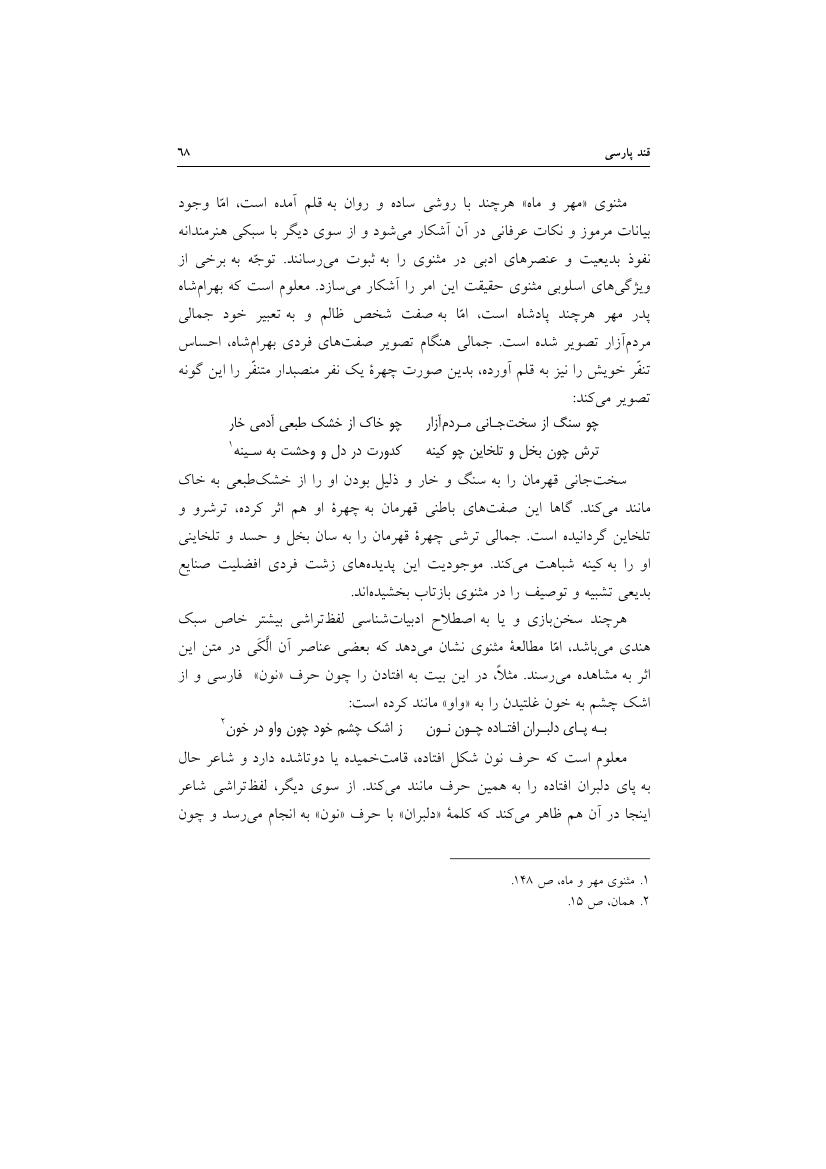 قند پارسی ٦٨
مثنوی «مهر و ماه» هرچند با روشی ساده و روان به قلم آمده است، امّا وجود
بیانات مرموز و نکات عرفانی در آن آشکار می‌شود و از سوی دیگر با سبکی هنرمندانه
نفوذ بدیعیت و عنصرهای ادبی در مثنوی را به ثبوت می‌رسانند. توجّه به برخی از
ویژگی‌های اسلوبی مثنوی حقیقت این امر را آشکار می‌سازد. معلوم است که بهرام‌شاه
پدر مهر هرچند پادشاه است، امّا به صفت شخص ظالم و به تعبیر خود جمالی
مردم‌آزار تصویر شده است. جمالی هنگام تصویر صفت‌های فردی بهرام‌شاه، احساس
تنفّر خویش را نیز به قلم آورده، بدین صورت چهرهٔ یک نفر منصبدار متنفّر را این گونه
تصویر می‌کند:
چو سنگ از سخت‌جـانی مـردم‌آزار چو خاک از خشک طبعی آدمی خار
ترش چون بخل و تلخاین چو کینه کدورت در دل و وحشت به سـینه۱
سخت‌جانی قهرمان را به سنگ و خار و ذلیل بودن او را از خشک‌طبعی به خاک
مانند می‌کند. گاها این صفت‌های باطنی قهرمان به چهرهٔ او هم اثر کرده، ترشرو و
تلخاین گردانیده است. جمالی ترشی چهرهٔ قهرمان را به سان بخل و حسد و تلخاینی
او را به کینه شباهت می‌کند. موجودیت این پدیده‌های زشت فردی افضلیت صنایع
بدیعی تشبیه و توصیف را در مثنوی بازتاب بخشیده‌اند.
هرچند سخن‌بازی و یا به اصطلاح ادبیات‌شناسی لفظ‌تراشی بیشتر خاص سبک
هندی می‌باشد، امّا مطالعهٔ مثنوی نشان می‌دهد که بعضی عناصر آن الَّکَی در متن این
اثر به مشاهده می‌رسند. مثلاً، در این بیت به افتادن را چون حرف «نون» فارسی و از
اشک چشم به خون غلتیدن را به «واو» مانند کرده است:
بـه پـای دلبـران افتـاده چـون نـون ز اشک چشم خود چون واو در خون۲
معلوم است که حرف نون شکل افتاده، قامت‌خمیده یا دوتاشده دارد و شاعر حال
به پای دلبران افتاده را به همین حرف مانند می‌کند. از سوی دیگر، لفظ‌تراشی شاعر
اینجا در آن هم ظاهر می‌کند که کلمهٔ «دلبران» با حرف «نون» به انجام می‌رسد و چون
۱. مثنوی مهر و ماه، ص ۱۴۸.
۲. همان، ص ۱۵.